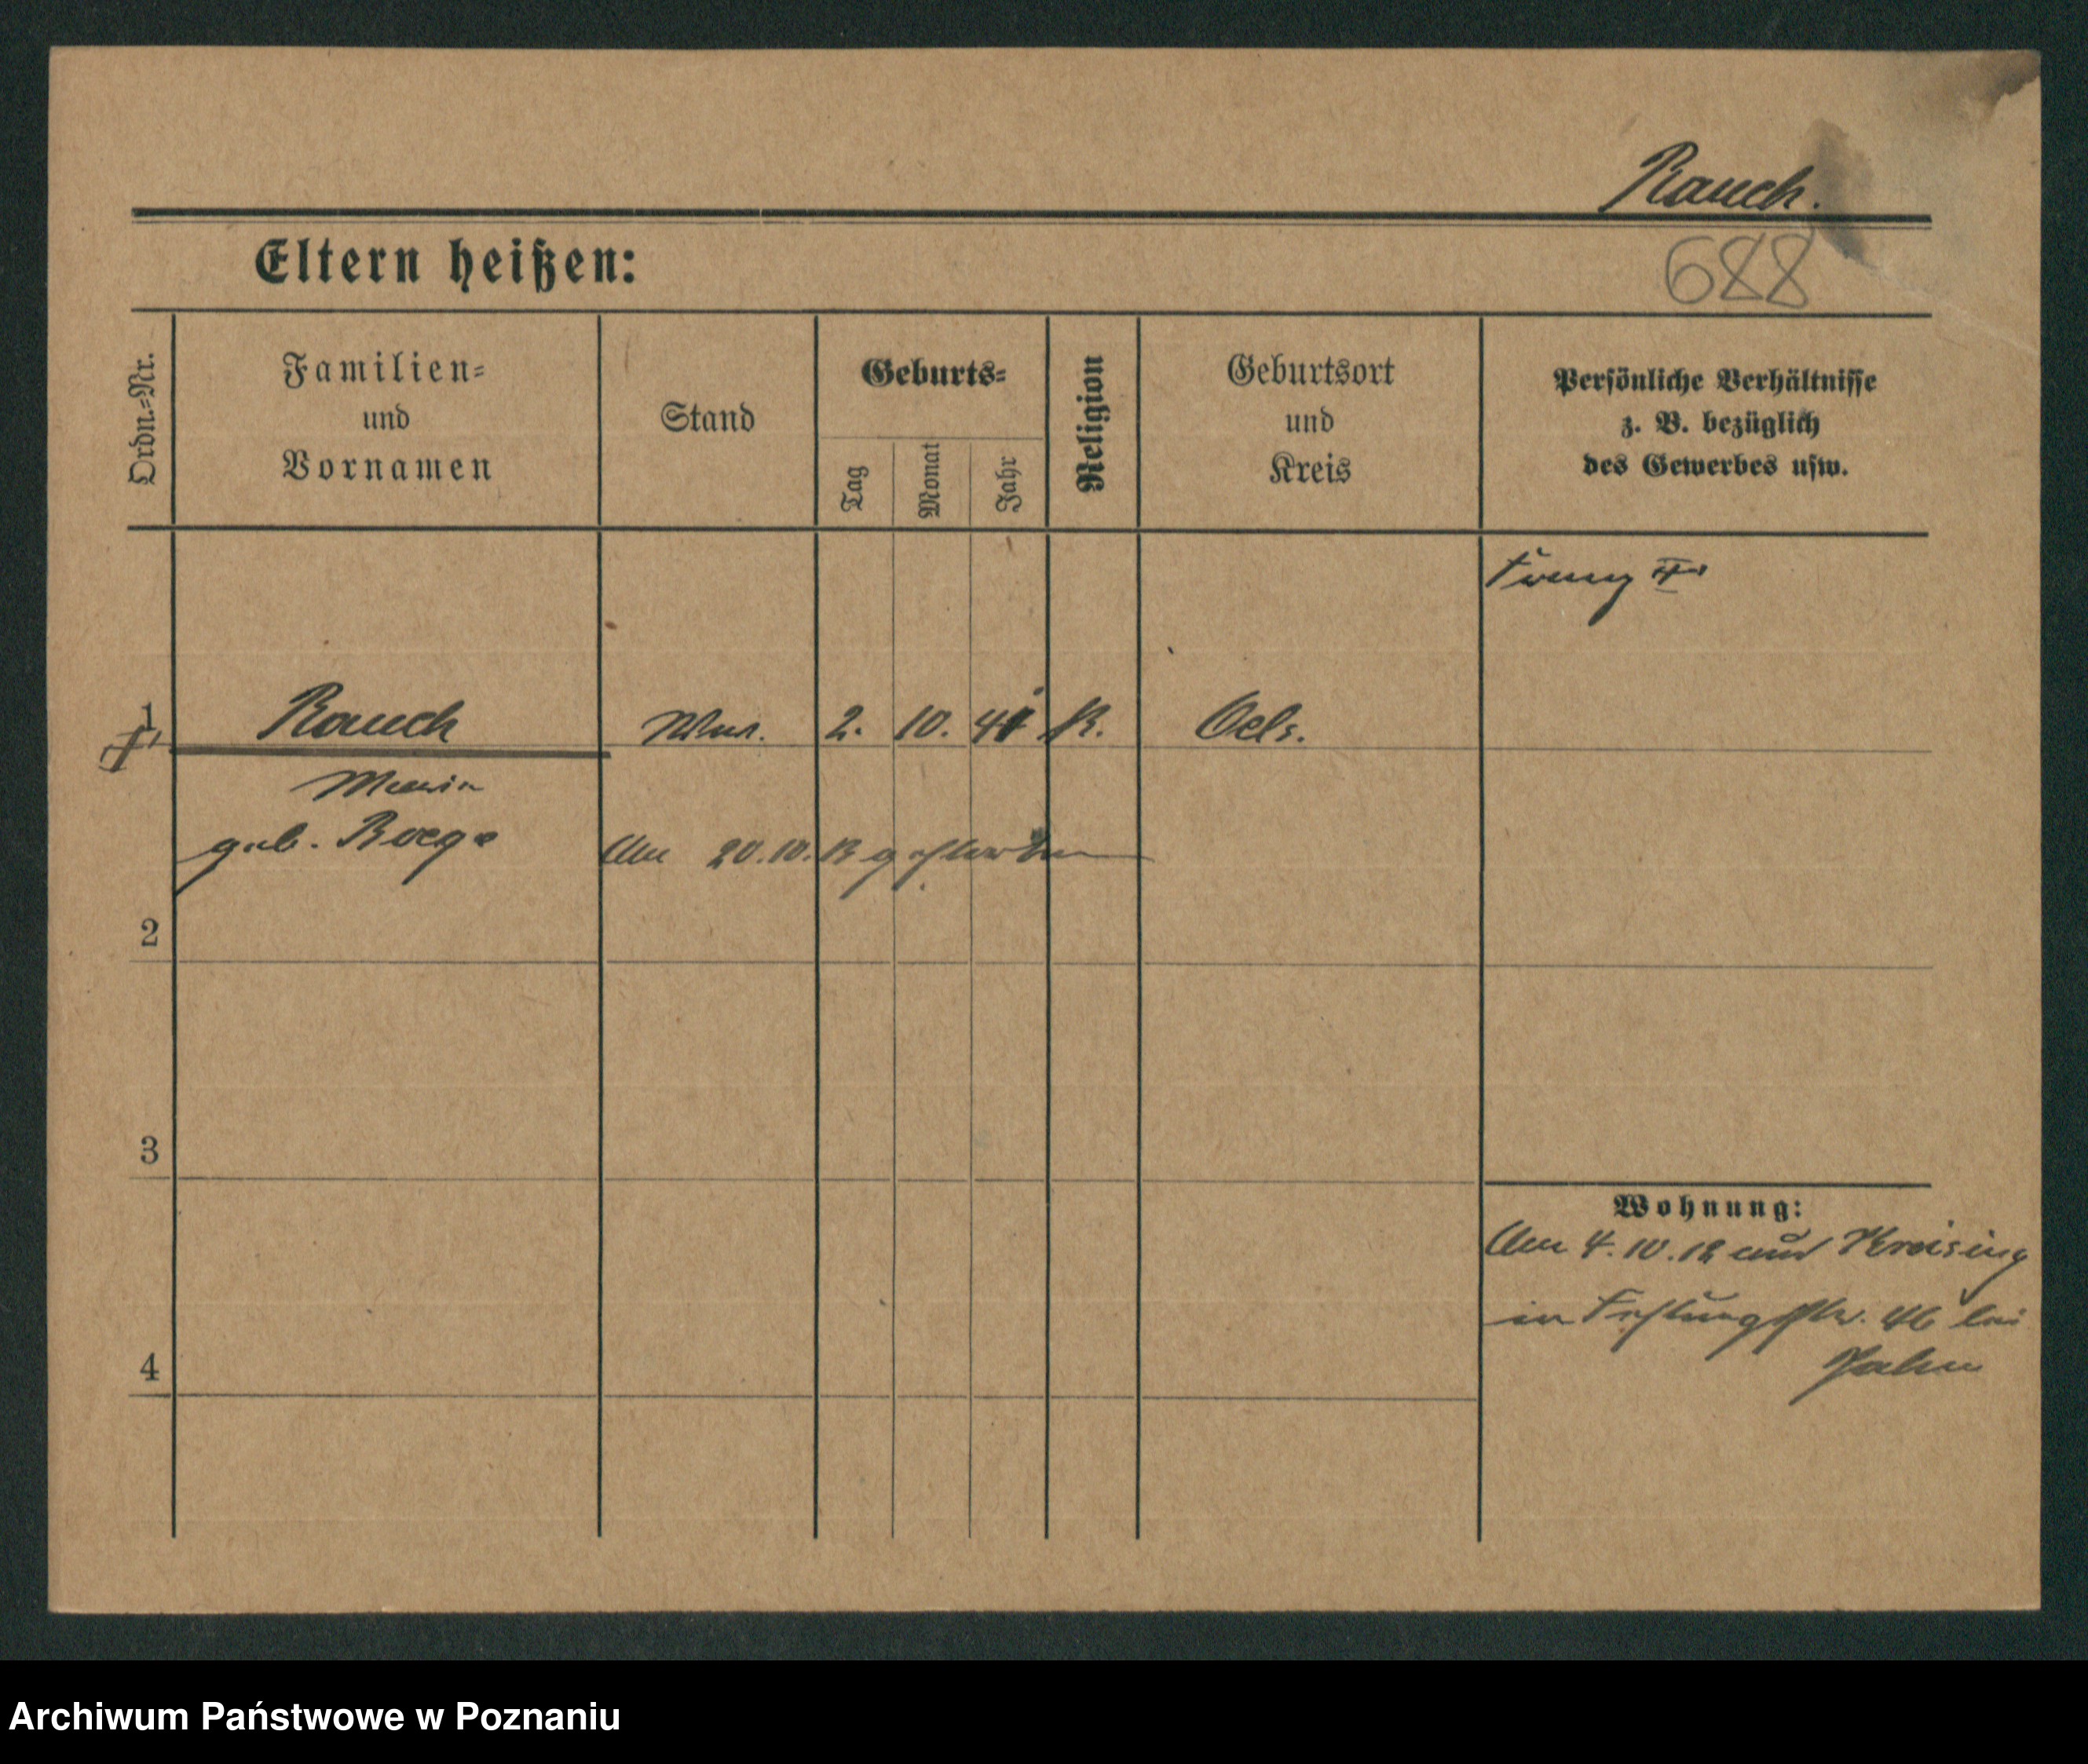 Rauch.
688
Eltern heißen:
Ordn.=Nr.
Familien=
und
Vornamen
Stand
Geburts=
Tag
Monat
Jahr
Religion
Geburtsort
und
Kreis
Persönliche Verhältnisse
z. B. bezüglich
des Gewerbes usw.
1
Rauch
Wwe.
2. 10. 41
K.
Oels.
Maria
geb.
Am 20. 10. 18 gestorben
2
3
4
Wohnung:
Am 4. 10. 18 aus Kreising
in Festungsstr. 46 bei
Archiwum Państwowe w Poznaniu